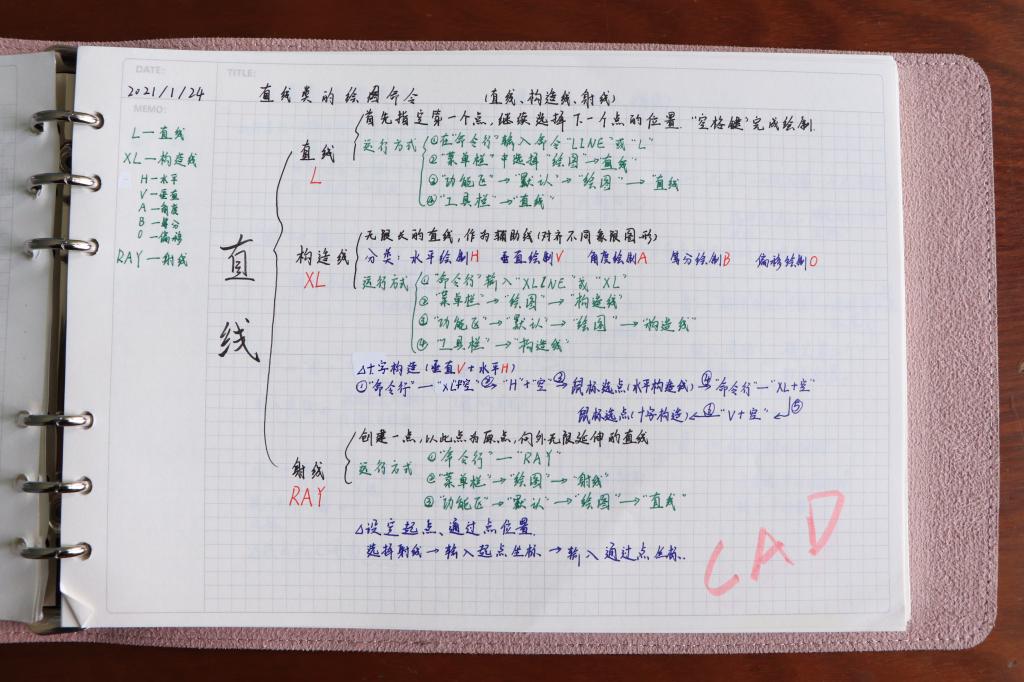 DATE:
TITLE:
2021/1/24
直线类的绘图命令 (直线、构造线、射线)
MEMO:
L—直线
XL—构造线
H—水平
V—垂直
A—角度
B—等分
O—偏移
RAY—射线
直线
直线
L
首先指定第一个点,继续选择下一个点的位置.“空格键”完成绘制.
运行方式
①在“命令行”输入命令“LINE”或“L”
②“菜单栏”中选择“绘图”→“直线”
③“功能区”→“默认”→“绘图”→“直线
④“工具栏”→“直线”
构造线
XL
无限长的直线,作为辅助线(对齐不同象限图形)
分类: 水平绘制H 垂直绘制V 角度绘制A 等分绘制B 偏移绘制O
运行方式
①“命令行”输入“XLINE”或“XL”
②“菜单栏”→“绘图”→“构造线”
③“功能区”→“默认”→“绘图”→“构造线”
④“工具栏”→“构造线”
△十字构造(垂直V+水平H)
①“命令行”—“XL+空”②→“H”+“空”③→鼠标选点(水平构造线)④→“命令行”—“XL+空”
鼠标选点(十字构造)⑥←“V+空”⑤
射线
RAY
创建一点,以此点为原点,向外无限延伸的直线
运行方式
①“命令行”—“RAY”
②“菜单栏”→“绘图”→“射线”
③“功能区”→“默认”→“绘图”→“直线”
△设定起点、通过点位置.
选择射线→输入起点坐标→输入通过点坐标.
CAD